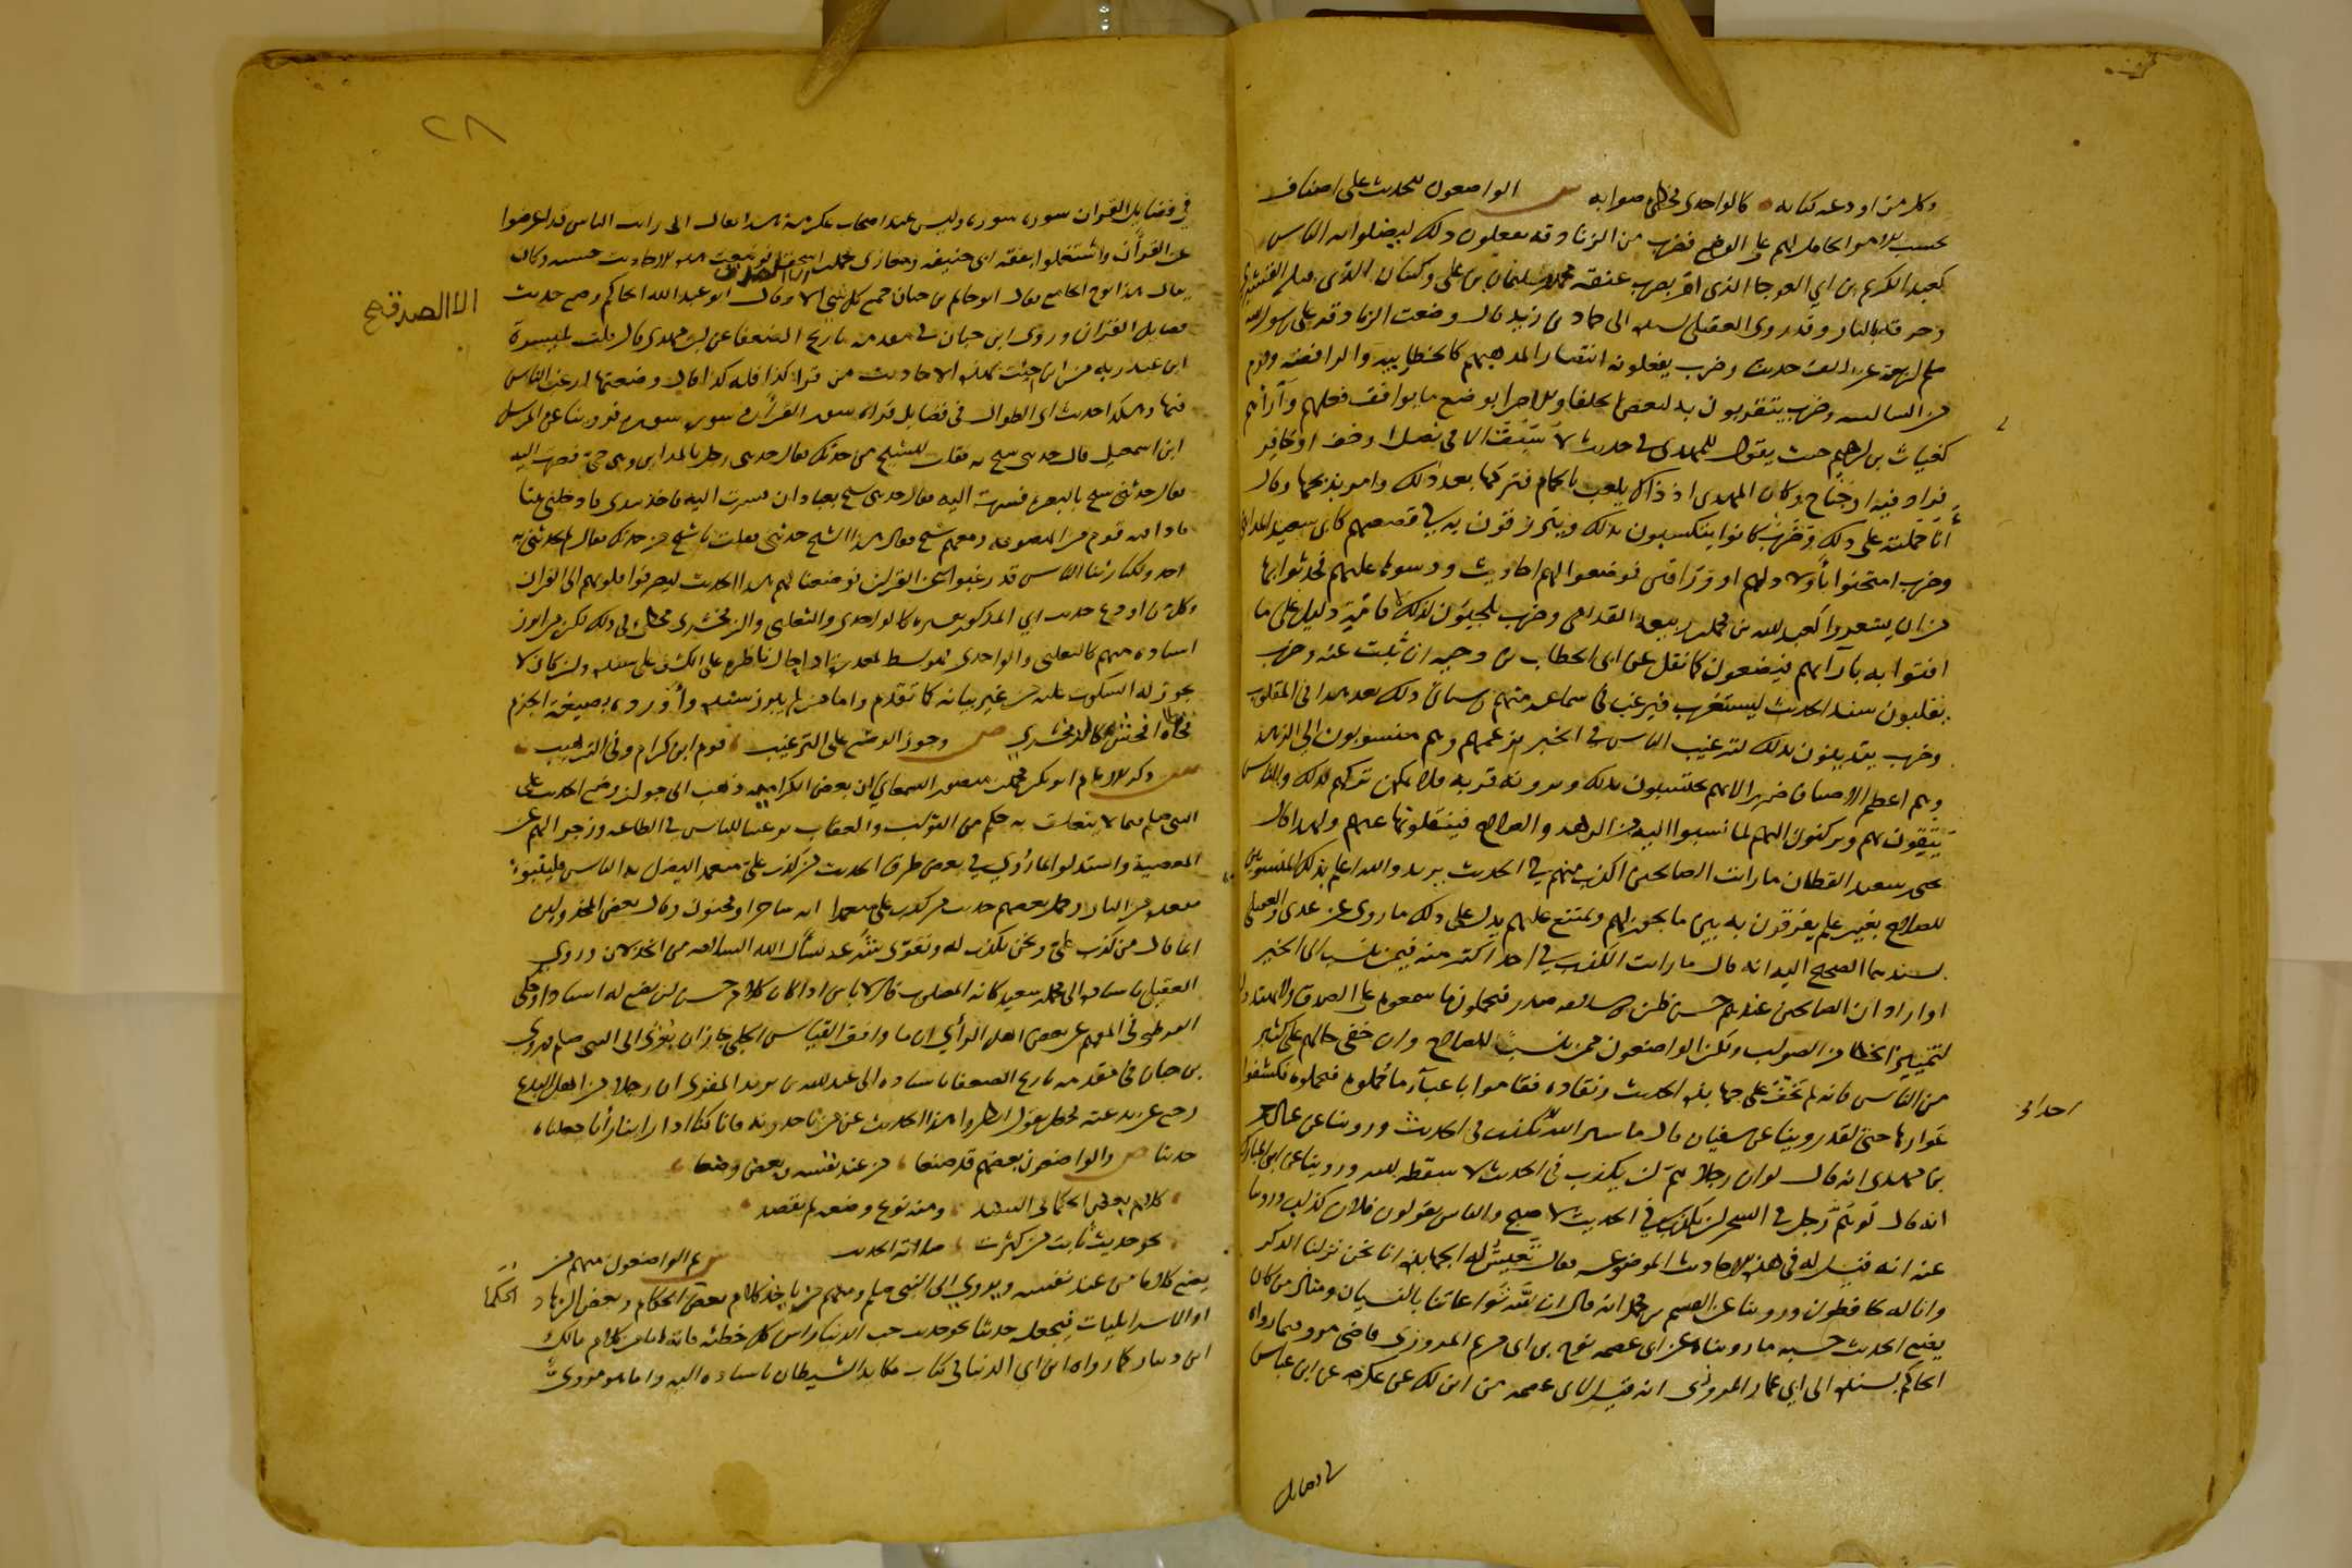 وكل من اودعه كتابه كالواحدي مخطئ صوابه ش الواضعون للحديث على اصناف
بحسب الامر الحامل لهم على الوضع فضرب من الزنادقة يفعلون ذلك ليضلوا به الناس
كعبد الكريم بن ابي العوجا الذي امر بضرب عنقه محمد بن سليمان بن علي وكبيان الذي قتله القسري
وحرقه بالنار وقد روى العقيلي بسنده الى حماد بن زيد قال وضعت الزنادقة على رسول الله
صلعم اربعة عشر الف حديث وضرب يفعلونه انتصارا لمذهبهم كالخطابية والرافضة وقوم
من السالمية وضرب يتقربون به لبعض الخلفاء والامراء بوضع ما يوافق فعلهم وآراءهم
كغياث بن ابراهيم حيث يقول للمهدي في حديث لا سبق الا في نصل او خف او حافر
فزاد فيه او جناح وكان المهدي اذ ذاك يلعب بالحمام فتركها بعد ذلك وامر بذبحها وقال
أنا حملته على ذلك وضرب كانوا يتكسبون بذلك ويترزقون به في قصصهم كابي سعيد المدائني
وضرب امتحنوا باولادهم او وراقين فوضعوا لهم احاديث ودسوها عليهم فحدثوا بها
من ان يشعروا كعبد الله بن محمد بن ربيعة القدامي وضرب يلجئون لذلك لاقامة دليل على ما
افتوا به بآرائهم فيضعون كما نقل عن ابي الخطاب بن دحية ان ثبت عنه وضرب
يقلبون سند الحديث ليستغرب فيرغب في سماعه منهم وسيأتي ذلك بعد هذا في المقلوب
وضرب يتدينون بذلك لترغيب الناس في الخير بزعمهم وهم منسوبون الى الزهد
وهم اعظم الاصناف ضررا لانهم يحتسبون بذلك ويرونه قربة فلا يمكن تركهم لذلك والناس
يثقون بهم ويركنون اليهم لما نسبوا اليه من الزهد والصلاح فينقلونها عنهم ولهذا قال
يحيى بن سعيد القطان ما رايت الصالحين اكذب منهم في الحديث يريد والله اعلم بذلك المنسوبين
للصلاح بغير علم يفرقون به بين ما يجوز لهم ويمتنع عليهم يدل على ذلك ما روى ابن عدي والعقيلي
بسندهما الصحيح اليه انه قال ما رايت الكذب في احد اكثر منه فيمن ينسب الى الخير
او اراد ان الصالحين عندهم حسن ظن وسلامة صدر فيحملون ما سمعوه على الصدق ولا يهتدون
لتمييز الخطا من الصواب ولكن الواضعون ممن ينسب للصلاح وان خفي حالهم على كثير
من الناس فانه لم تخف على جهابذة الحديث ونقاده فقاموا باعباء ما حملوه فتحملوه فكشفوا
احدا في
عوارها حتى لقد روينا عن سفيان قال ما ستر الله احدا يكذب في الحديث وروينا عن عبد الرحمن
بن مهدي انه قال لو ان رجلا هم ان يكذب في الحديث لاسقطه الله وروينا عن ابن المبارك
انه قال لو هم رجل في السحر ان يكذب في الحديث لاصبح والناس يقولون فلان كذاب وروينا
عنه انه قيل له في هذه الاحاديث الموضوعة فقال تعيش لها الجهابذة انا نحن نزلنا الذكر
وانا له لحافظون وروينا عن القسم بن محمد انه قال ان الله تعالى اعاننا بالنسيان ومثال من كان
يضع الحديث حسبة ما روينا عن ابي عصمة نوح بن ابي مريم المروزي قاضي مرو فيما رواه
الحاكم بسنده الى ابي عمار المروزي انه قيل لابي عصمة من اين لك عن عكرمة عن ابن عباس
في فضايل
٢٨
في فضايل القران سورة سورة وليس عند اصحاب عكرمة هذا فقال اني رايت الناس قد اعرضوا
عن القرآن واشتغلوا بفقه ابي حنيفة ومغازي محمد بن اسحق فوضعت هذه الاحاديث حسبة وكان
يقال لهذا نوح الجامع فقال ابو حاتم بن حبان جمع كل شي الا الصدق وقال ابو عبد الله الحاكم وضع حديث
الا الصدق صح
فضايل القرآن وروى ابن حبان في مقدمة تاريخ الضعفا عن ابن مهدي قال قلت لميسرة
ابن عبد ربه من اين جئت بهذه الاحاديث من قرا كذا فله كذا قال وضعتها ارغب الناس
فيها وهكذا حديث ابي الطوال في فضايل قراة سور القرآن سورة سورة فروينا عن المؤمل
ابن اسمعيل قال حدثني شيخ به فقلت للشيخ من حدثك فقال حدثني رجل بالمداين وهو حي فصرت اليه
فقال حدثني شيخ بالبصرة فصرت اليه فقال حدثني شيخ بعبادان فصرت اليه فاخذ بيدي فادخلني بيتا
فاذا فيه قوم من المتصوفة ومعهم شيخ فقال هذا الشيخ حدثني فقلت يا شيخ من حدثك فقال لم يحدثني به
احد ولكنا راينا الناس قد رغبوا عن القرآن فوضعنا لهم هذا الحديث ليصرفوا قلوبهم الى القران
وكل من اودع حديث ابي المذكور تفسيره كالواحدي والثعلبي والزمخشري مخطئ في ذلك لكن من ابرز
اسناده منهم كالثعلبي والواحدي فهو ابسط لعذره اذ احال ناظره على الكشف على سنده وان كان لا
يجوز له السكوت عليه من غير بيانه كما تقدم واما من لم يبرز سنده واورده بصيغة الجزم
فخطاه افحش كالزمخشري ص وجوز الوضع على الترغيب قوم ابن كرام وفي الترهيب
ش ذكر الامام ابو بكر محمد بن منصور السمعاني ان بعض الكرامية ذهب الى جواز وضع الحديث على
النبي صلعم فيما لا يتعلق به حكم من الثواب والعقاب ترغيبا للناس في الطاعة وزجرا لهم عن
المعصية واستدلوا بما روي في بعض طرق الحديث من كذب علي متعمدا ليضل به الناس فليتبوأ
مقعده من النار وحمل بعضهم حديث من كذب علي متعمدا انه ساحر او مجنون وقال بعض المخذولين
انما قال من كذب علي ونحن نكذب له ونقوي شرعه نسأل الله السلامة من الخذلان وروى
العقيلي باسناده الى محمد بن سعيد كانه المصلوب قال لا باس اذا كان كلام حسن ان يضع له اسنادا وحكى
القرطبي في المفهم عن بعض اهل الرأي ان ما وافق القياس الجلي جاز ان يعزى الى النبي صلعم وروى
بن حبان في مقدمة تاريخ الضعفا باسناده الى عبد الله بن يزيد المقري ان رجلا من اهل البدع
رجع عن بدعته فجعل يقول انظروا هذا الحديث عن من تاخذونه فانا كنا اذا راينا رأيا جعلناه
حديثا ص والواضعون بعضهم قد صنعا من عند نفسه وبعض وضعا
كلام بعض الحكما في المسند ومنه نوع وضعه لم يقصد
نحو حديث ثابت من كثرت صلاته الحديث
ش ثم الواضعون منهم من
يضع كلاما من عند نفسه ويرويه الى النبي صلعم ومنهم من ياخذ كلام بعض الحكام وبعض الزهاد
الحكما
او الاسرايليات فيجعله حديثا نحو حديث حب الدنيا راس كل خطيئة فانه اما من كلام مالك
ابن دينار كما رواه ابن ابي الدنيا في كتاب مكايد الشيطان باسناده اليه واما هو مروي